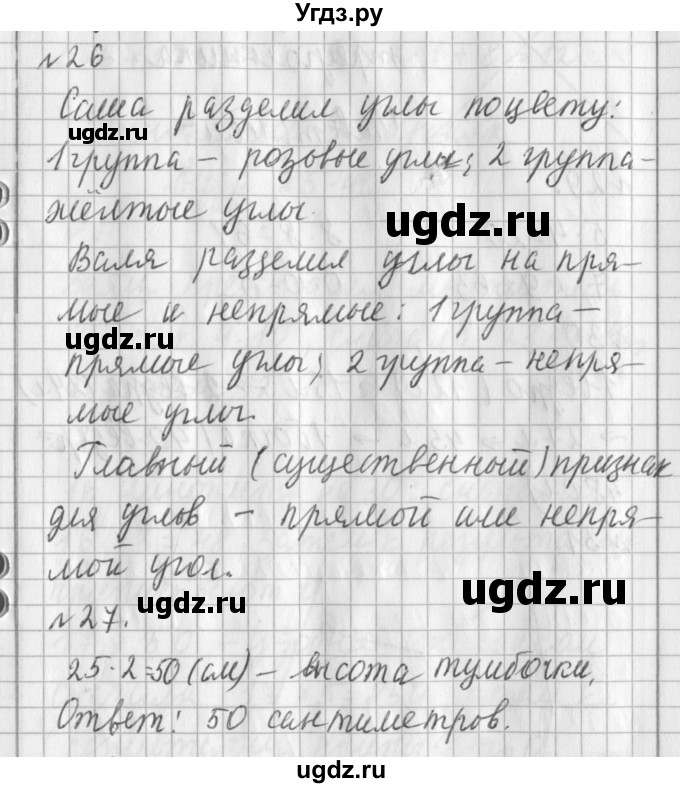 Угдз.ру
№26
Саша разделил углы по цвету:
ugdz.ru
1 группа – розовые углы; 2 группа –
жёлтые углы.
ugdz.ru
Валя разделил углы на пря–
мые и непрямые: 1 группа –
ugdz.ru
прямые углы; 2 группа – непря–
мые углы.
Главный (существенный) признак
для углов – прямой или непря–
мой угол.
ugdz.ru
ugdz.ru
№27.
25·2=50 (см) – высота тумбочки.
Ответ: 50 сантиметров.
ugdz.ru